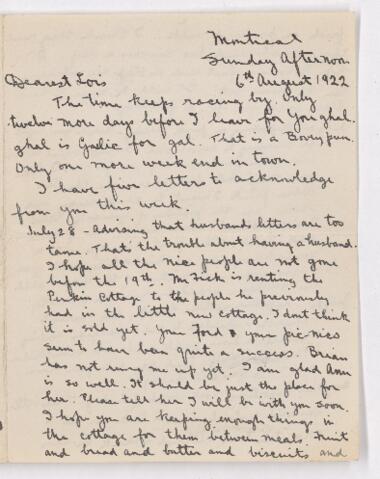 Montreal
Sunday Afternoon
6th August 1922
Dearest Lois
The time keeps racing by. Only
twelve more days before I leave for Youghal.
ghal is Gaelic for gal. That is a Bovey pun.
Only one more week end in town.
I have five letters to acknowledge
from you this week.
July 28 - Advising that husbands letters are too
tame. That's the trouble about having a husband.
I hope all the nice people are not gone
before the 19th. Mr Fick is renting the
Perkin Cottage to the people he previously
had in the little new cottage. I dont think
it is sold yet. Your Ford & your pic-nics
seem to have been quite a success. Brian
has not rung me up yet. I am glad Ann
is so well. It should be just the place for
her. Please tell her I will be with you soon.
I hope you are keeping enough things in
the cottage for them between meals. Fruit
and bread and butter and biscuits and